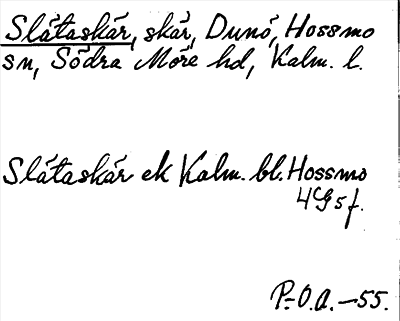 Slätaskär, skär, Dunö, Hossmo
sn, Södra Möre hd, Kalm. l.
Slätaskär ek Kalm. bl. Hossmo
4G5f.
P.-O.A. -55.